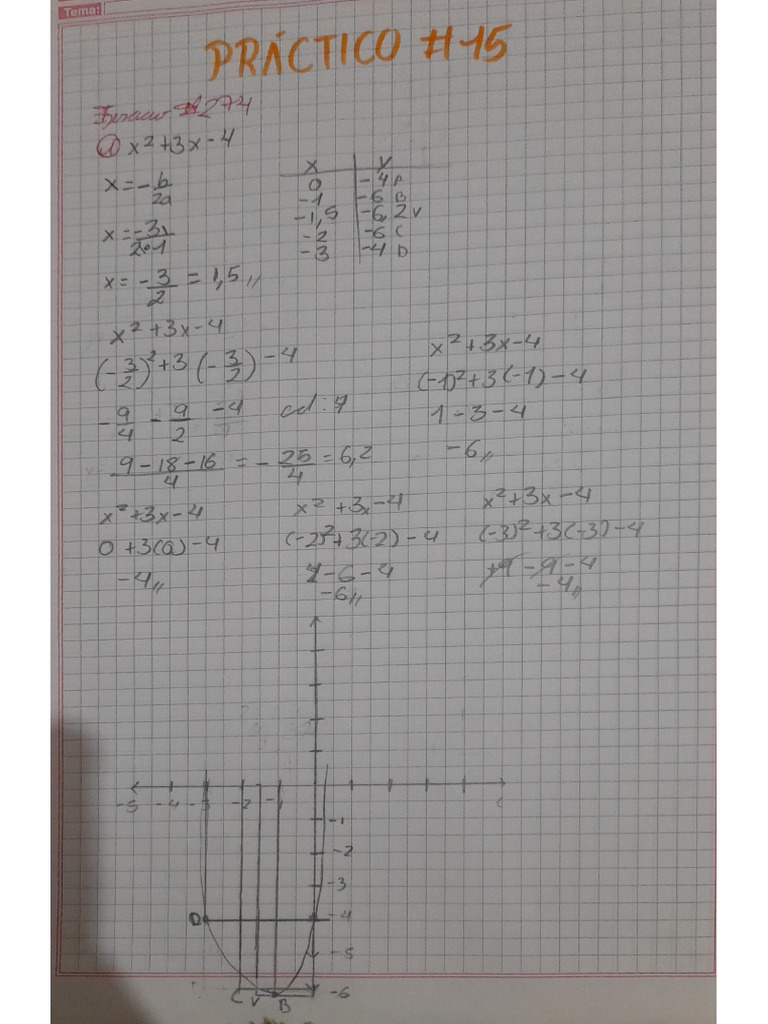 Tema:
PRÁCTICO #15
274
① x² + 3x - 4
x = -b/2a
x = -3/2·1
x = -3/2 = 1,5 //
x y
0 -4 A
-1 -6 B
-1,5 -6,2 V
-2 -6 C
-3 -4 D
x² + 3x - 4
(-3/2)² + 3 (-3/2) - 4
-9/4 - 9/2 - 4
9 - 18 - 16/4 = -25/4 = 6,2
x² + 3x - 4
(-1)² + 3(-1) - 4
1 - 3 - 4
-6 //
x² + 3x - 4
0 + 3(0) - 4
-4 //
x² + 3x - 4
(-2)² + 3(-2) - 4
- 6 - 4
-6 //
x² + 3x - 4
(-3)² + 3(-3) - 4
+9 - 9 - 4
-4 //
-5 -4 -3 -2 -1
-1
-2
-3
D -4
-5
C V B -6